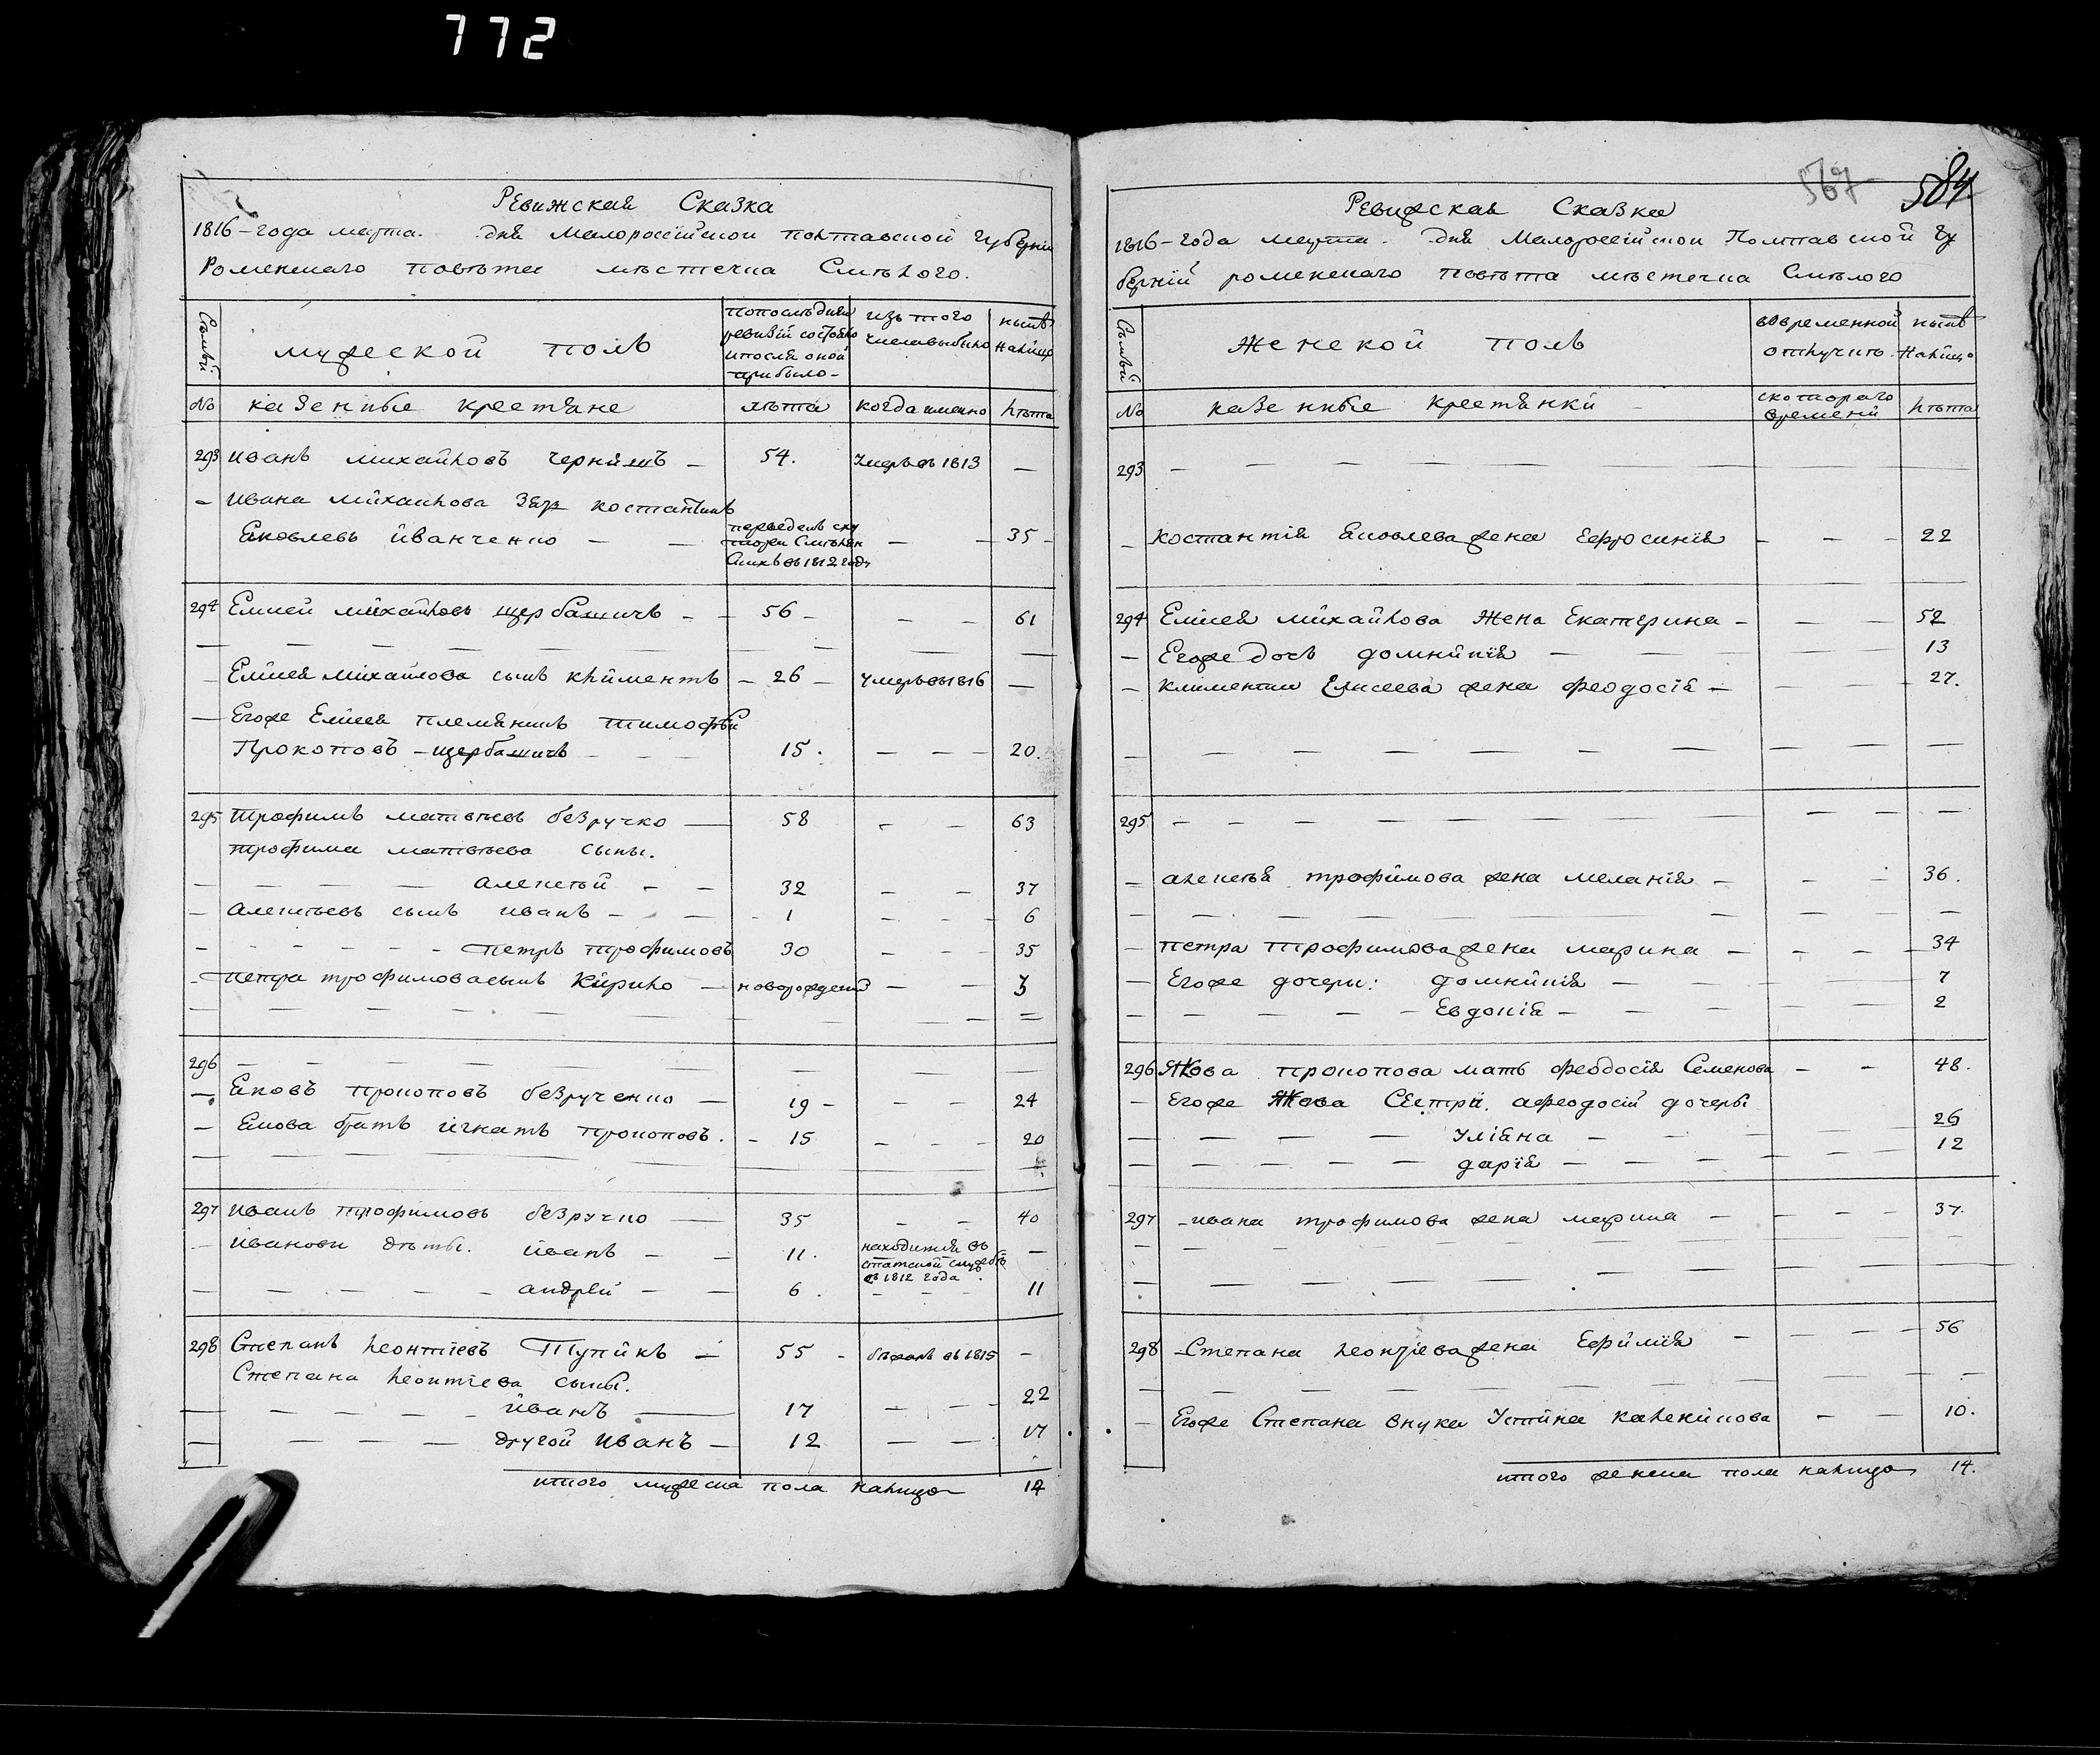 772
Ревижская Сказка
1816-года марта. дня Малороссійской полтавской губерніи
Роменскаго повѣта мѣстечка Смѣлого.
Съмьй
мужеской полъ
попослѣдней ревизій состояло ипосля оной прибыло-
изъ того числавыбыло
нынѣ налицо
№ казенные крестяне
лѣта
когда именно
лѣта
293 иванъ михайловъ чернйшъ - 54. Умеръ въ 1813 —
- Ивана михайлова зяр костантинъ
Яковлевъ йванченко - - переведенъ
въ 1812 году - - 35 -
294 Елисей михайловъ щербашичъ - - 56 - - - 61
Елисея михайлова сынъ клйментъ - 26 - умеръ въ 1816 —
— Егоже Елисея племяникъ тимофѣй
Прокоповъ - щербашичъ - - - 15. - - - 20.
295 трофимъ матвѣевъ безручко — 58 - - 63
трофима матвѣева сыны.
- - - - алексѣй - - 32 - - 37
- алексѣевъ сынъ иванъ - - - 1 - - - 6
- - - - - - петръ трофимовъ 30 - - - 35
- петра трофимова сынъ Кирило - новорожденній - - 3
296 - - - - - -
- Яковъ прокоповъ безрученко — 19 - - - - 24
- Якова братъ игнатъ прокоповъ. - 15 - - - 20
297 иванъ трофимовъ безручко — 35 - - 40
- йванови дѣтьі. йванъ - - 11. находится въ статской службѣ съ 1812 года —
- - - - - - андрей - - 6. - - - 11
298 Степанъ леонтіевъ Тупйкъ — 55 - бѣжалъ въ 1815 -
Степана леонтіева сыны.
— - - - - - йванъ — 17 - - - 22
— - - - другой иванъ - 12 - - 17
итого мужеска пола налицо 14
567 584
Ревижская Сказка
1816-года марта. дня Малороссійской Полтавской гу
берній роменскаго повѣта мѣстечка Смѣлого
Съмьй
Женской полъ
вовременной отлучкѣ.
нынѣ налицо
№ казенные крестянкй -
скотораго времени
лѣта
293 - - - - - - -
- костантія Яковлева жена Ефросинія - - - 22
294 Елисея михайлова Жена Екатерина - - - 52
- Егоже дочь домнйкія - - - - 13
- климентия Елисеева жена феодосія - - - 27.
295 - - - - - - -
- алексѣя трофймова жена меланія - - - 36.
- петра трофимова жена марина - - - 34
- Егоже дочери: домнйкія - - - - 7
- - - - - Евдокія - - - - 2
296 Якова прокопова мать феодосія Семенова - - 48.
- Егоже Якова Сестри. афеодосій дочерьі
- - - - - Уліяна - - - 26
- - - - - дарія - - - - 12
297 -ивана трофимова жена марина - - - - 37.
298 -Степана леонтіева жена Ефимія - - - - 56
- Егоже Степана внука Устйна каленйкова - - 10.
итого женска пола налицо 14.